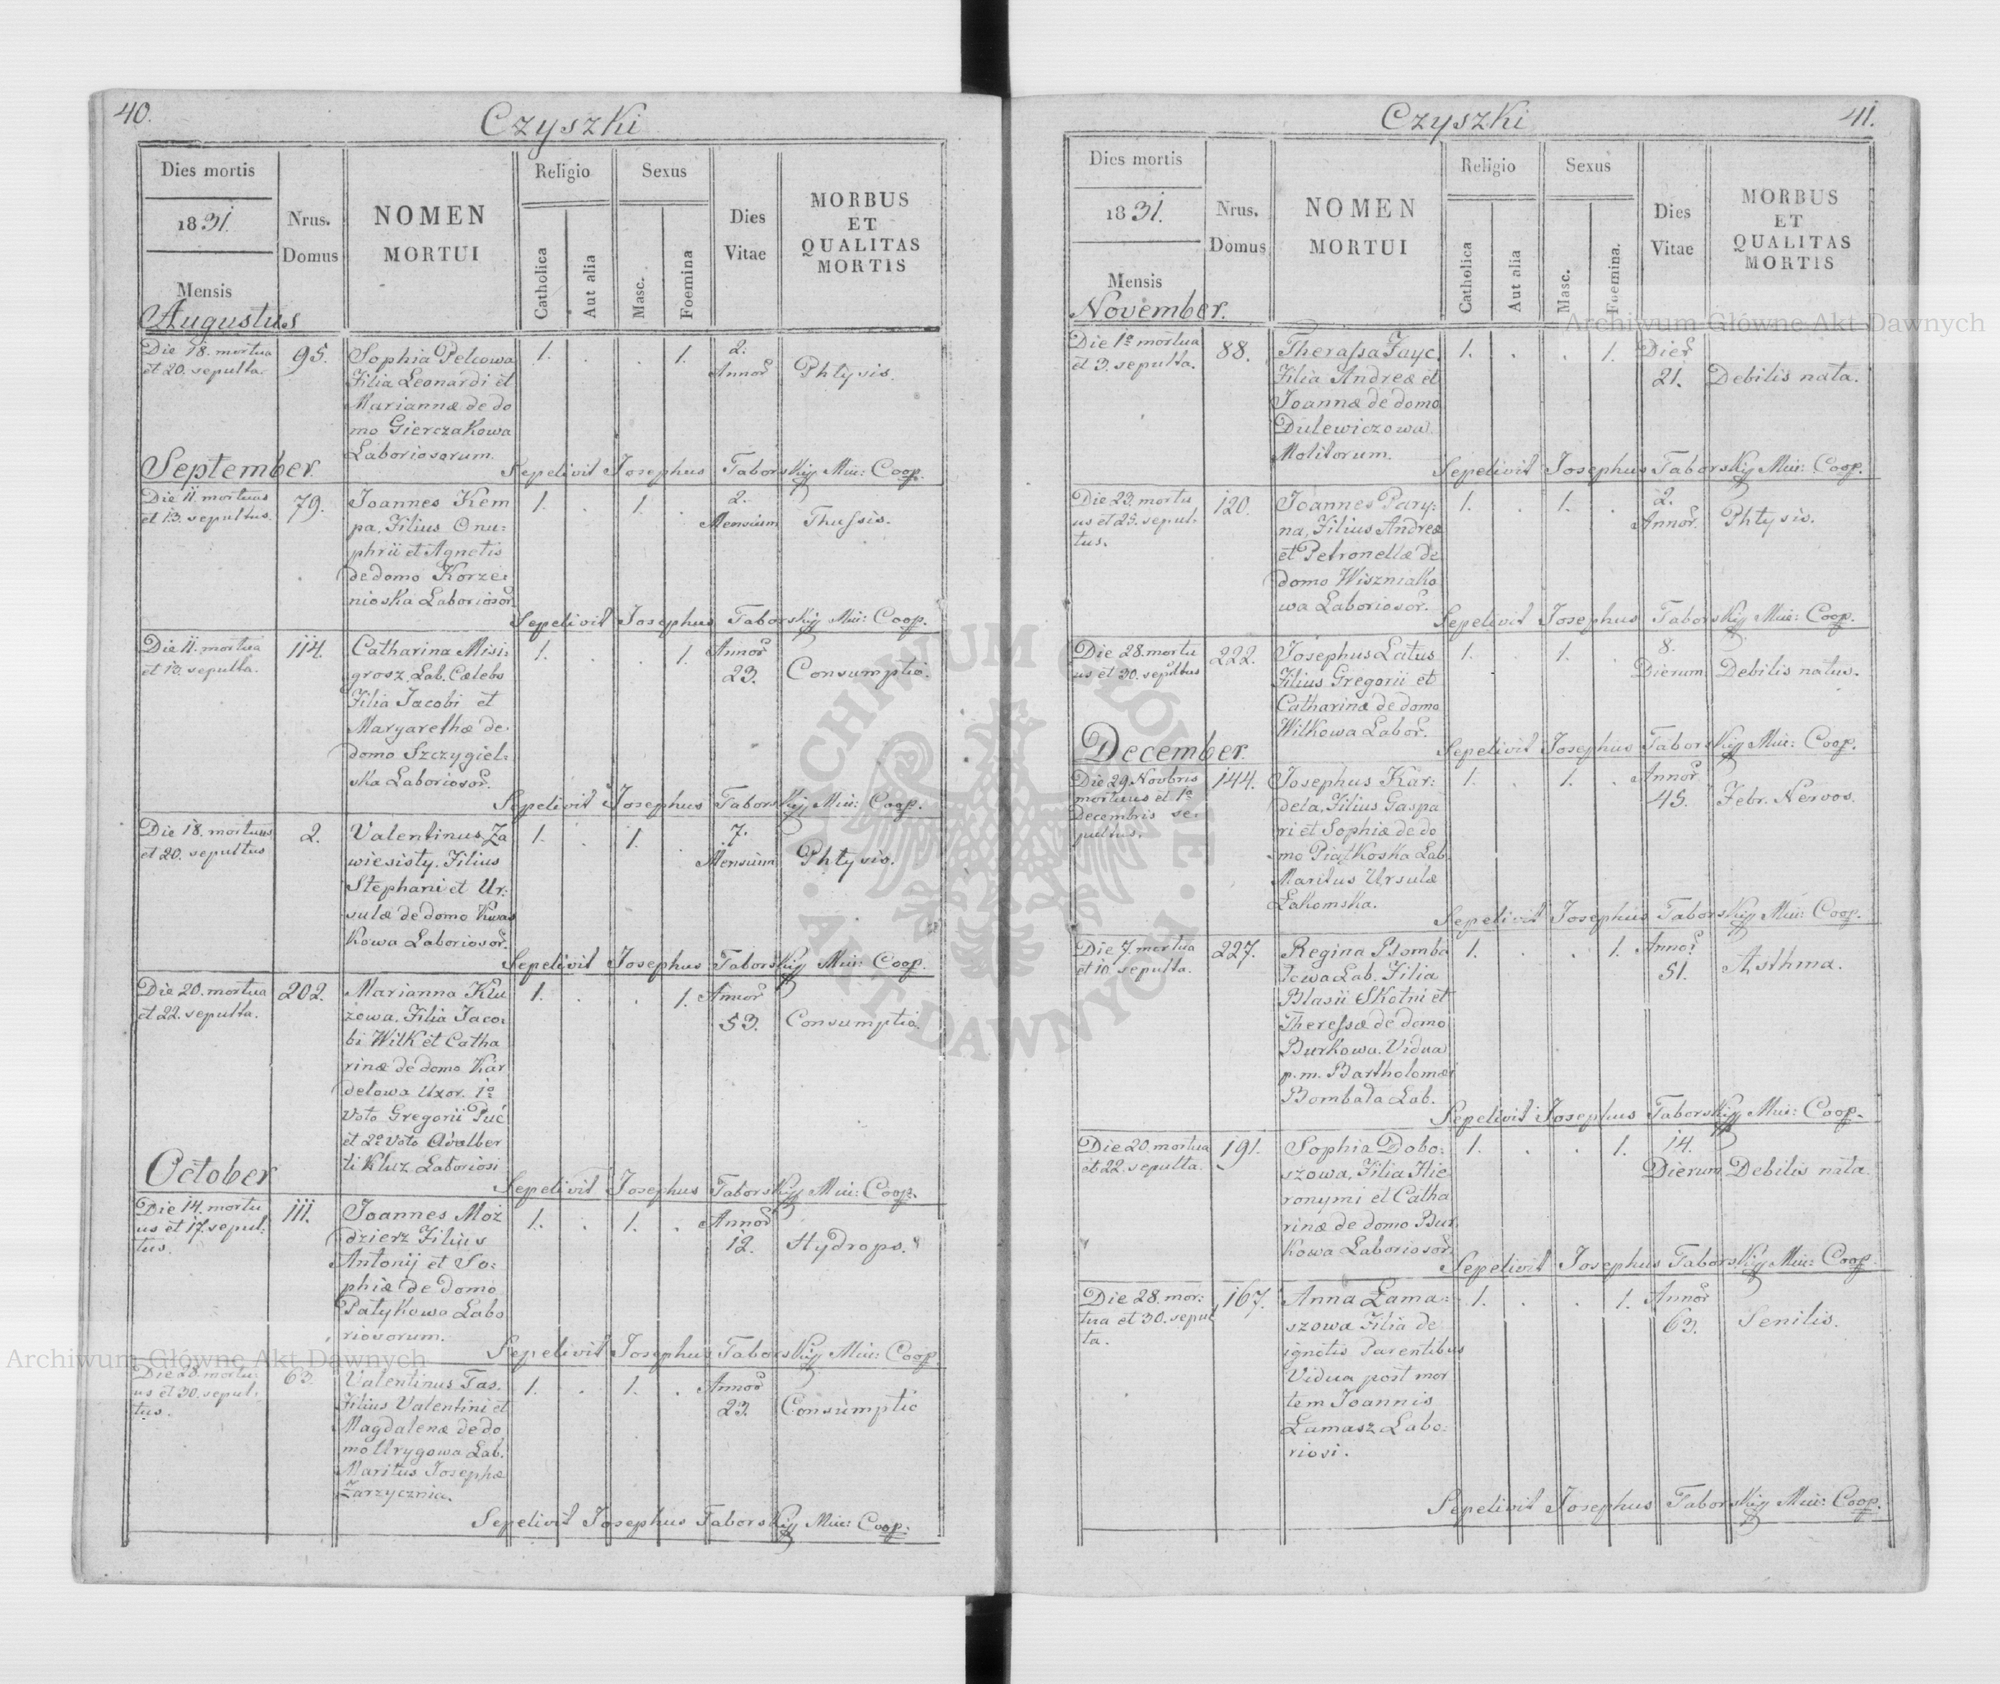 40.
Czyszki
Dies mortis
1831.
Mensis
Augustus
Nrus.
Domus
NOMEN
MORTUI
Religio
Catholica
Aut alia
Sexus
Masc.
Foemina
Dies
Vitae
MORBUS
ET
QUALITAS
MORTIS
Die 18. mortua
et 20. sepulta.
95.
Sophia Pelcowa
Filia Leonardi et
Mariannæ de do
mo Gierczakowa
Laboriosorum.
1. . . 1.
2.
Annor
Phtysis.
Sepelivit Josephus Taborskij Mui: Coop.
September
Die 11. mortuus
et 13. sepultus.
79.
Joannes Kem
pa, Filius Onu:
phrii et Agnetis
de domo Korze:
nioska Laboriosor
1. . 1. .
2.
Mensium
Thussis.
Sepelivit Josephus Taborskij Mui: Coop.
Die 11. mortua
et 13. sepulta.
114.
Catharina Misi:
grosz, Lab. Cælebs
Filia Jacobi et
Margarethæ de
domo Szczygiel:
ska Laboriosor.
1. . . 1.
Annor
23.
Consumptio.
Sepelivit Josephus Taborskij Mui: Coop.
Die 18. mortuus
et 20. sepultus
2.
Valentinus Za
wiesisty, Filius
Stephani et Ur:
sulæ de domo Kwas
kowa Laboriosor.
1. . 1. .
7.
Mensium
Phtysis.
Sepelivit Josephus Taborskij Mui: Coop.
Die 20. mortua
et 22. sepulta.
202.
Marianna Klu
zowa, Filia Jaco:
bi Wilk et Catha
rinæ de domo Kar
delowa Uxor. 1o
voto Gregorii Puć
et 2o voto Adalber
ti Kluz Laboriosi
1. . . 1.
Annor
53.
Consumptio.
Sepelivit Josephus Taborskij Mui: Coop.
October
Die 14. mortu
us et 17. sepul:
tus.
111.
Joannes Moź
dzierz Filius
Antonij et So:
phiæ de domo
Patykowa Labo
riosorum.
1. . 1. .
Annor
12.
Hydrops.
Sepelivit Josephus Taborskij Mui: Coop
Die 28. mortu:
us et 30. sepul:
tus.
63.
Valentinus Tas.
Filius Valentini et
Magdalenæ de do
mo Urygowa Lab.
Maritus Josephæ
Zarzycznia.
1. . 1. .
Annor
23.
Consumptio
Sepelivit Josephus Taborskij Mui: Coop.
41.
Czyszki
Dies mortis
1831.
Mensis
November.
Nrus.
Domus
NOMEN
MORTUI
Religio
Catholica
Aut alia
Sexus
Masc.
Foemina.
Dies
Vitae
MORBUS
ET
QUALITAS
MORTIS
Die 1a mortua
et 3. sepulta.
88.
Therassa Jayc.
Filia Andreæ et
Joannæ de domo
Dulewiczowa
Molitorum.
1. . . 1.
Dier
21.
Debilis nata.
Sepelivit Josephus Taborskij Mui: Coop.
Die 23. mortu
us et 25. sepul:
tus.
120.
Joannes Pary:
na, Filius Andreæ
et Petronellæ de
domo Wiszniako
wa Laboriosor.
1. . 1. .
2.
Annor.
Phtysis.
Sepelivit Josephus Taborskij Mui: Coop.
Die 28. mortu
us et 30. sepultus
222.
Josephus Latus
Filius Gregorii et
Catharinæ de domo
Wilkowa Labor.
1. . 1. .
8.
Dierum
Debilis natus.
Sepelivit Josephus Taborskij Mui: Coop.
December.
Die 29. Novbris
mortuus et 1a
Decembris se:
pultus.
144.
Josephus Kar:
dela, Filius Gaspa
ri et Sophiæ de do
mo Piątkoska Lab.
Maritus Ursulæ
Łakomska.
1. . 1. .
Annor
45.
Febr. Nervos.
Sepelivit Josephus Taborskij Mui: Coop.
Die 7. mortua
et 10. sepulta.
227.
Regina Bomba
lowa Lab. Filia
Blasii Skotni et
Theressæ de domo
Burkowa. Vidua
p. m. Bartholomæi
Bombała Lab.
1. . . 1.
Annor
51.
Asthma.
Sepelivit Josephus Taborskij Mui: Coop.
Die 20. mortua
et 22. sepulta.
191.
Sophia Dobo:
szowa, Filia Hie
ronymi et Catha
rinæ de domo Bur
kowa Laboriosor.
1. . . 1.
14.
Dierum
Debilis nata.
Sepelivit Josephus Taborskij Mui: Coop
Die 28. mor:
tua et 30. sepul
ta.
167.
Anna Łama:
szowa Filia de
ignotis Parentibus
Vidua post mor
tem Joannis
Łamasz Labo:
riosi.
1. . . 1.
Annor
63.
Senilis.
Sepelivit Josephus Taborskij Mui: Coop.
Archiwum Główne Akt Dawnych
Archiwum Główne Akt Dawnych
ARCHIWUM GŁÓWNE · AKT DAWNYCH ·